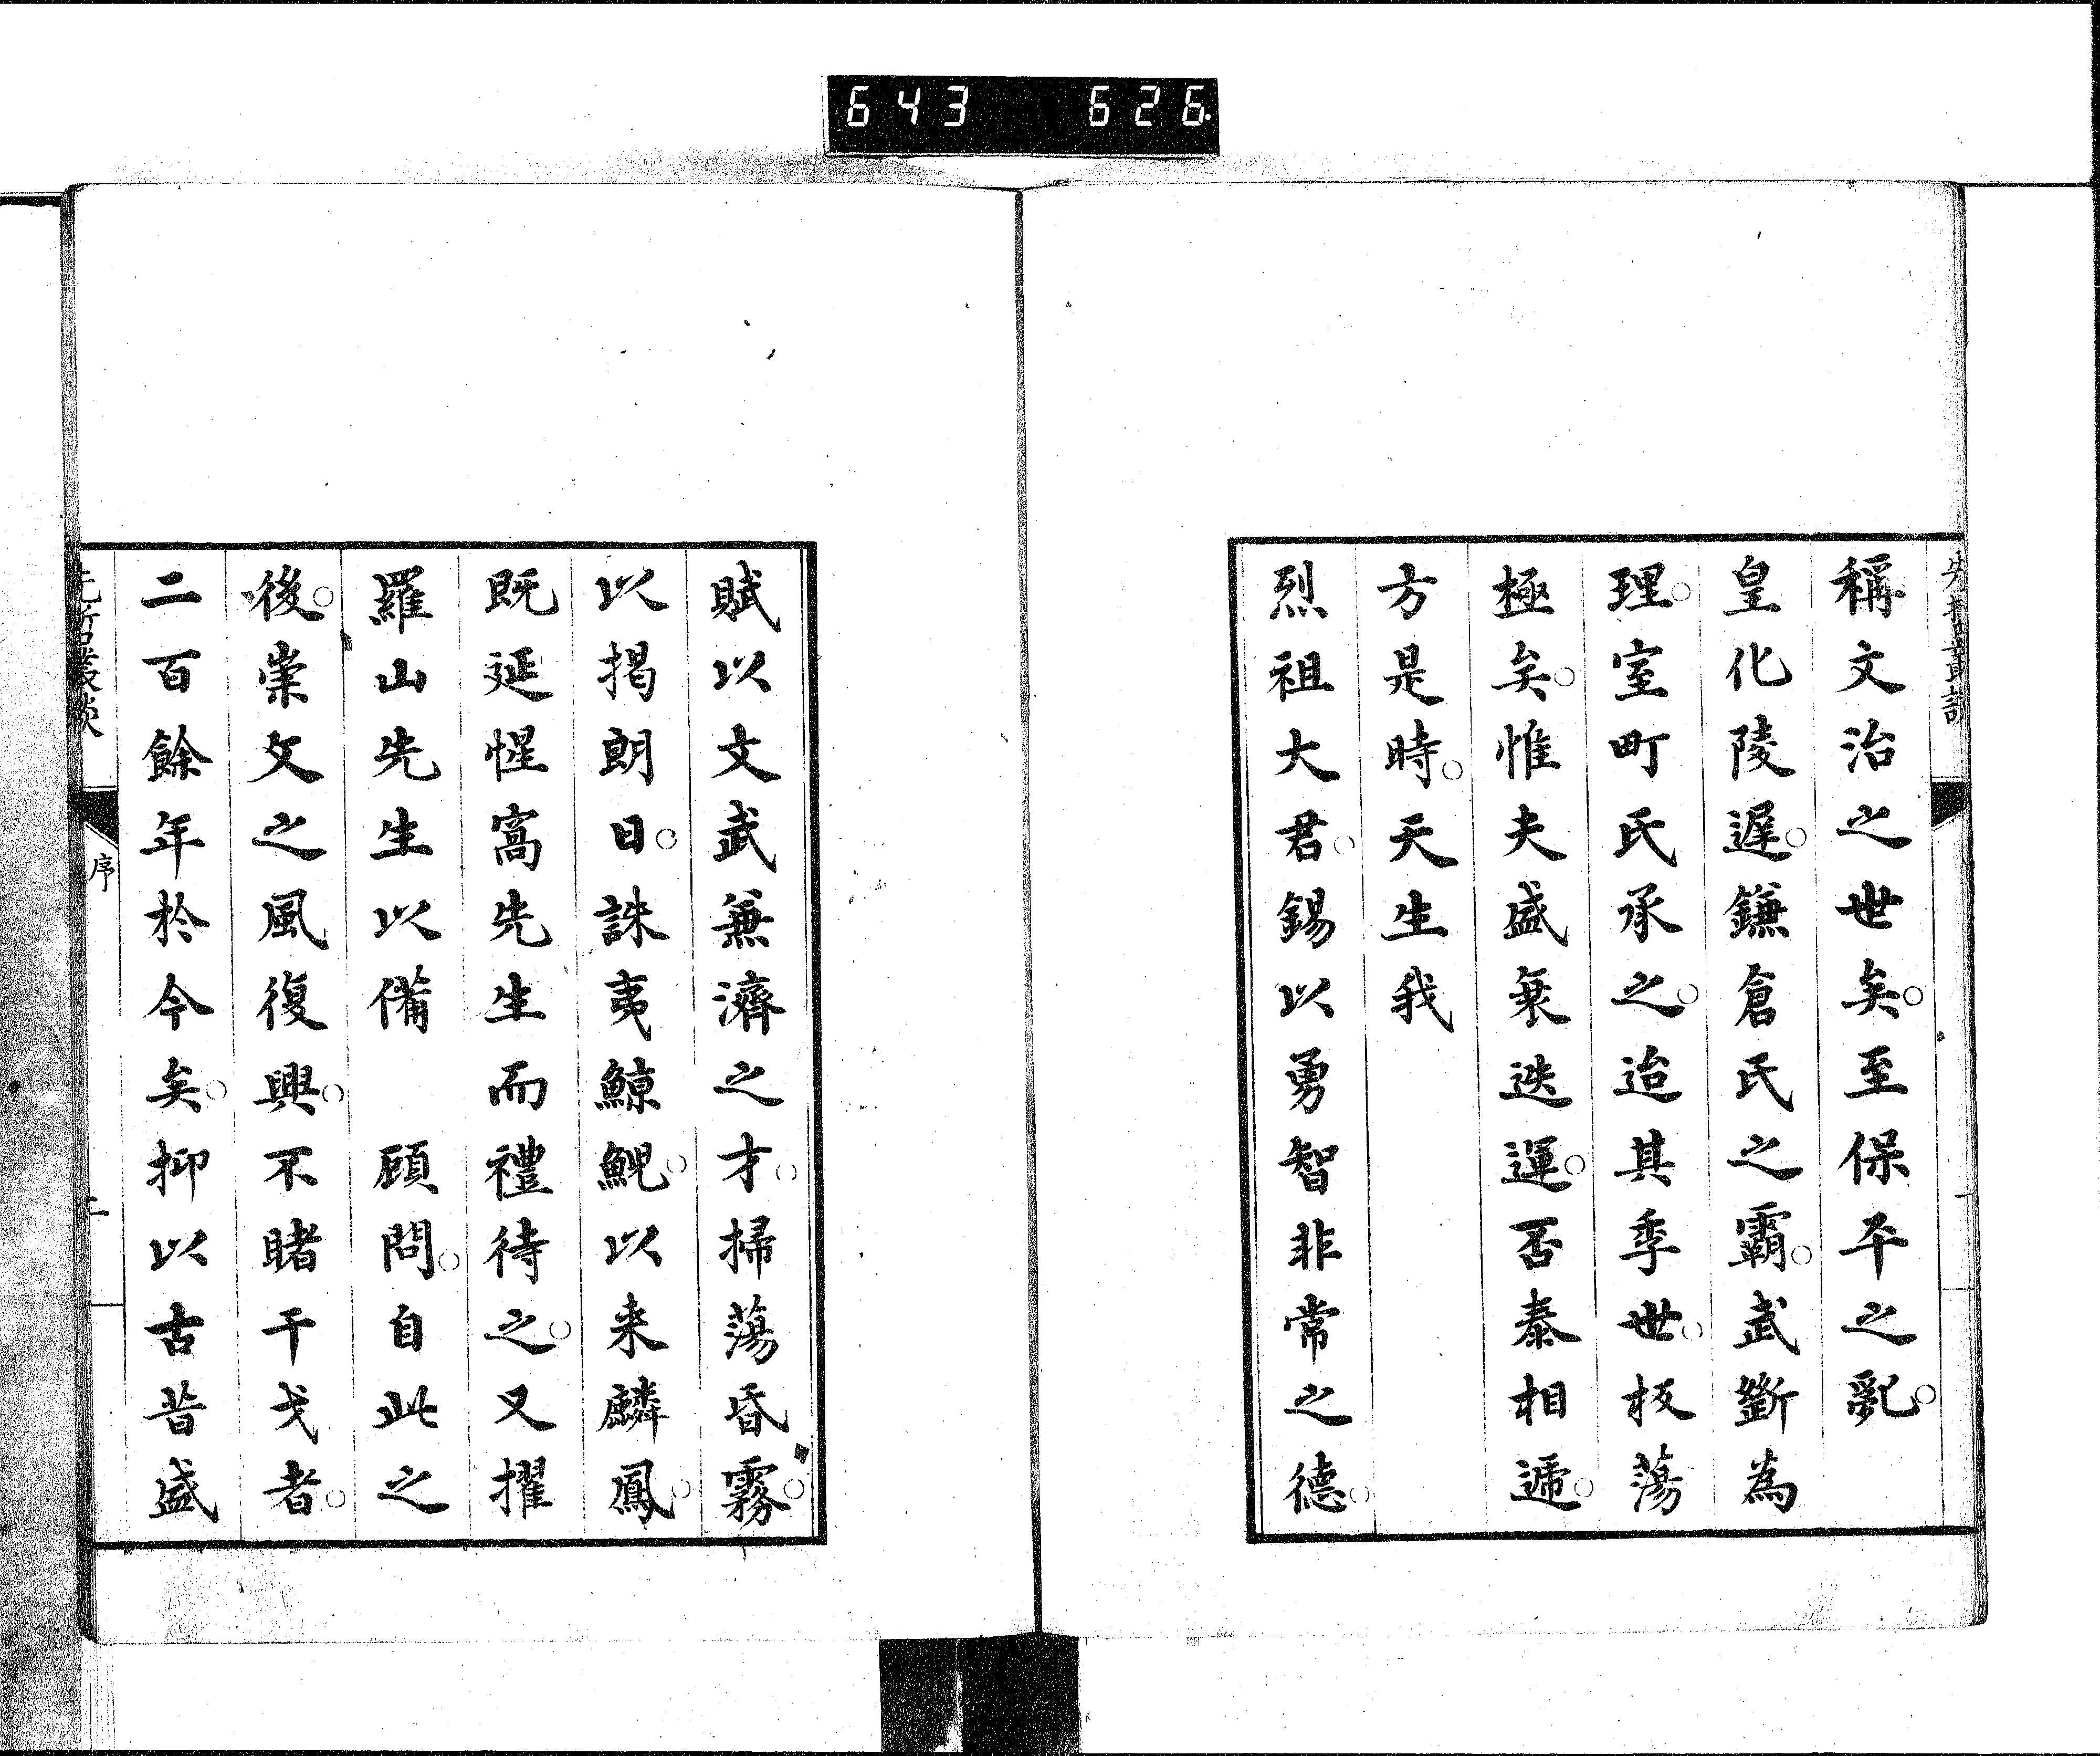 643 626.
先哲叢談
稱文治之世矣。至保平之亂。
皇化陵遲。鎌倉氏之霸。武斷為
理。室町氏承之。迨其季世。板蕩
極矣。惟夫盛衰迭運。否泰相遞。
方是時。天生我
烈祖大君。錫以勇智非常之德。
賦以文武兼濟之才。掃蕩昏霧。
以揭朗日。誅夷鯨鯢。以来麟鳳。
既延惺窩先生而禮待之。又擢
羅山先生以備 顧問。自此之
後。崇文之風復興。不睹干戈者。
二百餘年於今矣。抑以古昔盛
先哲叢談
序
二